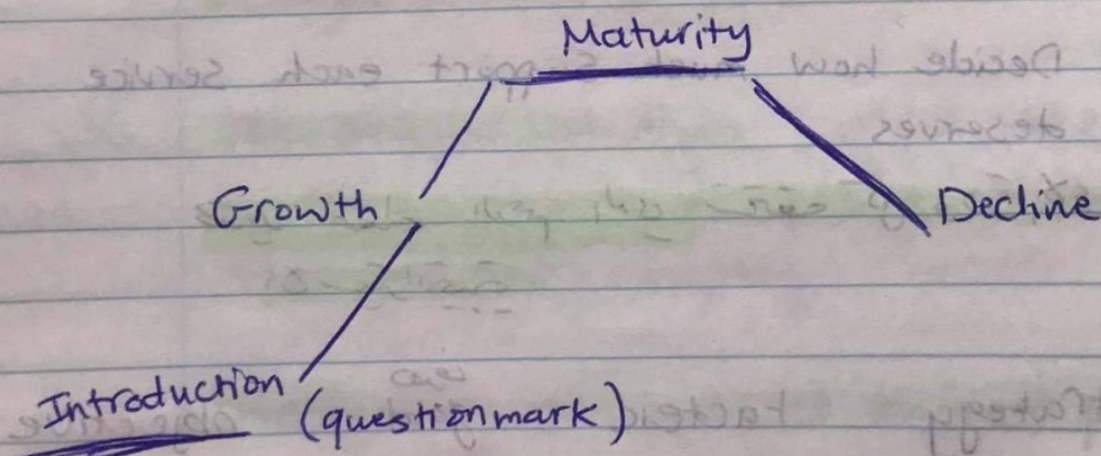 Maturity
Growth
Decline
Introduction (questionmark)